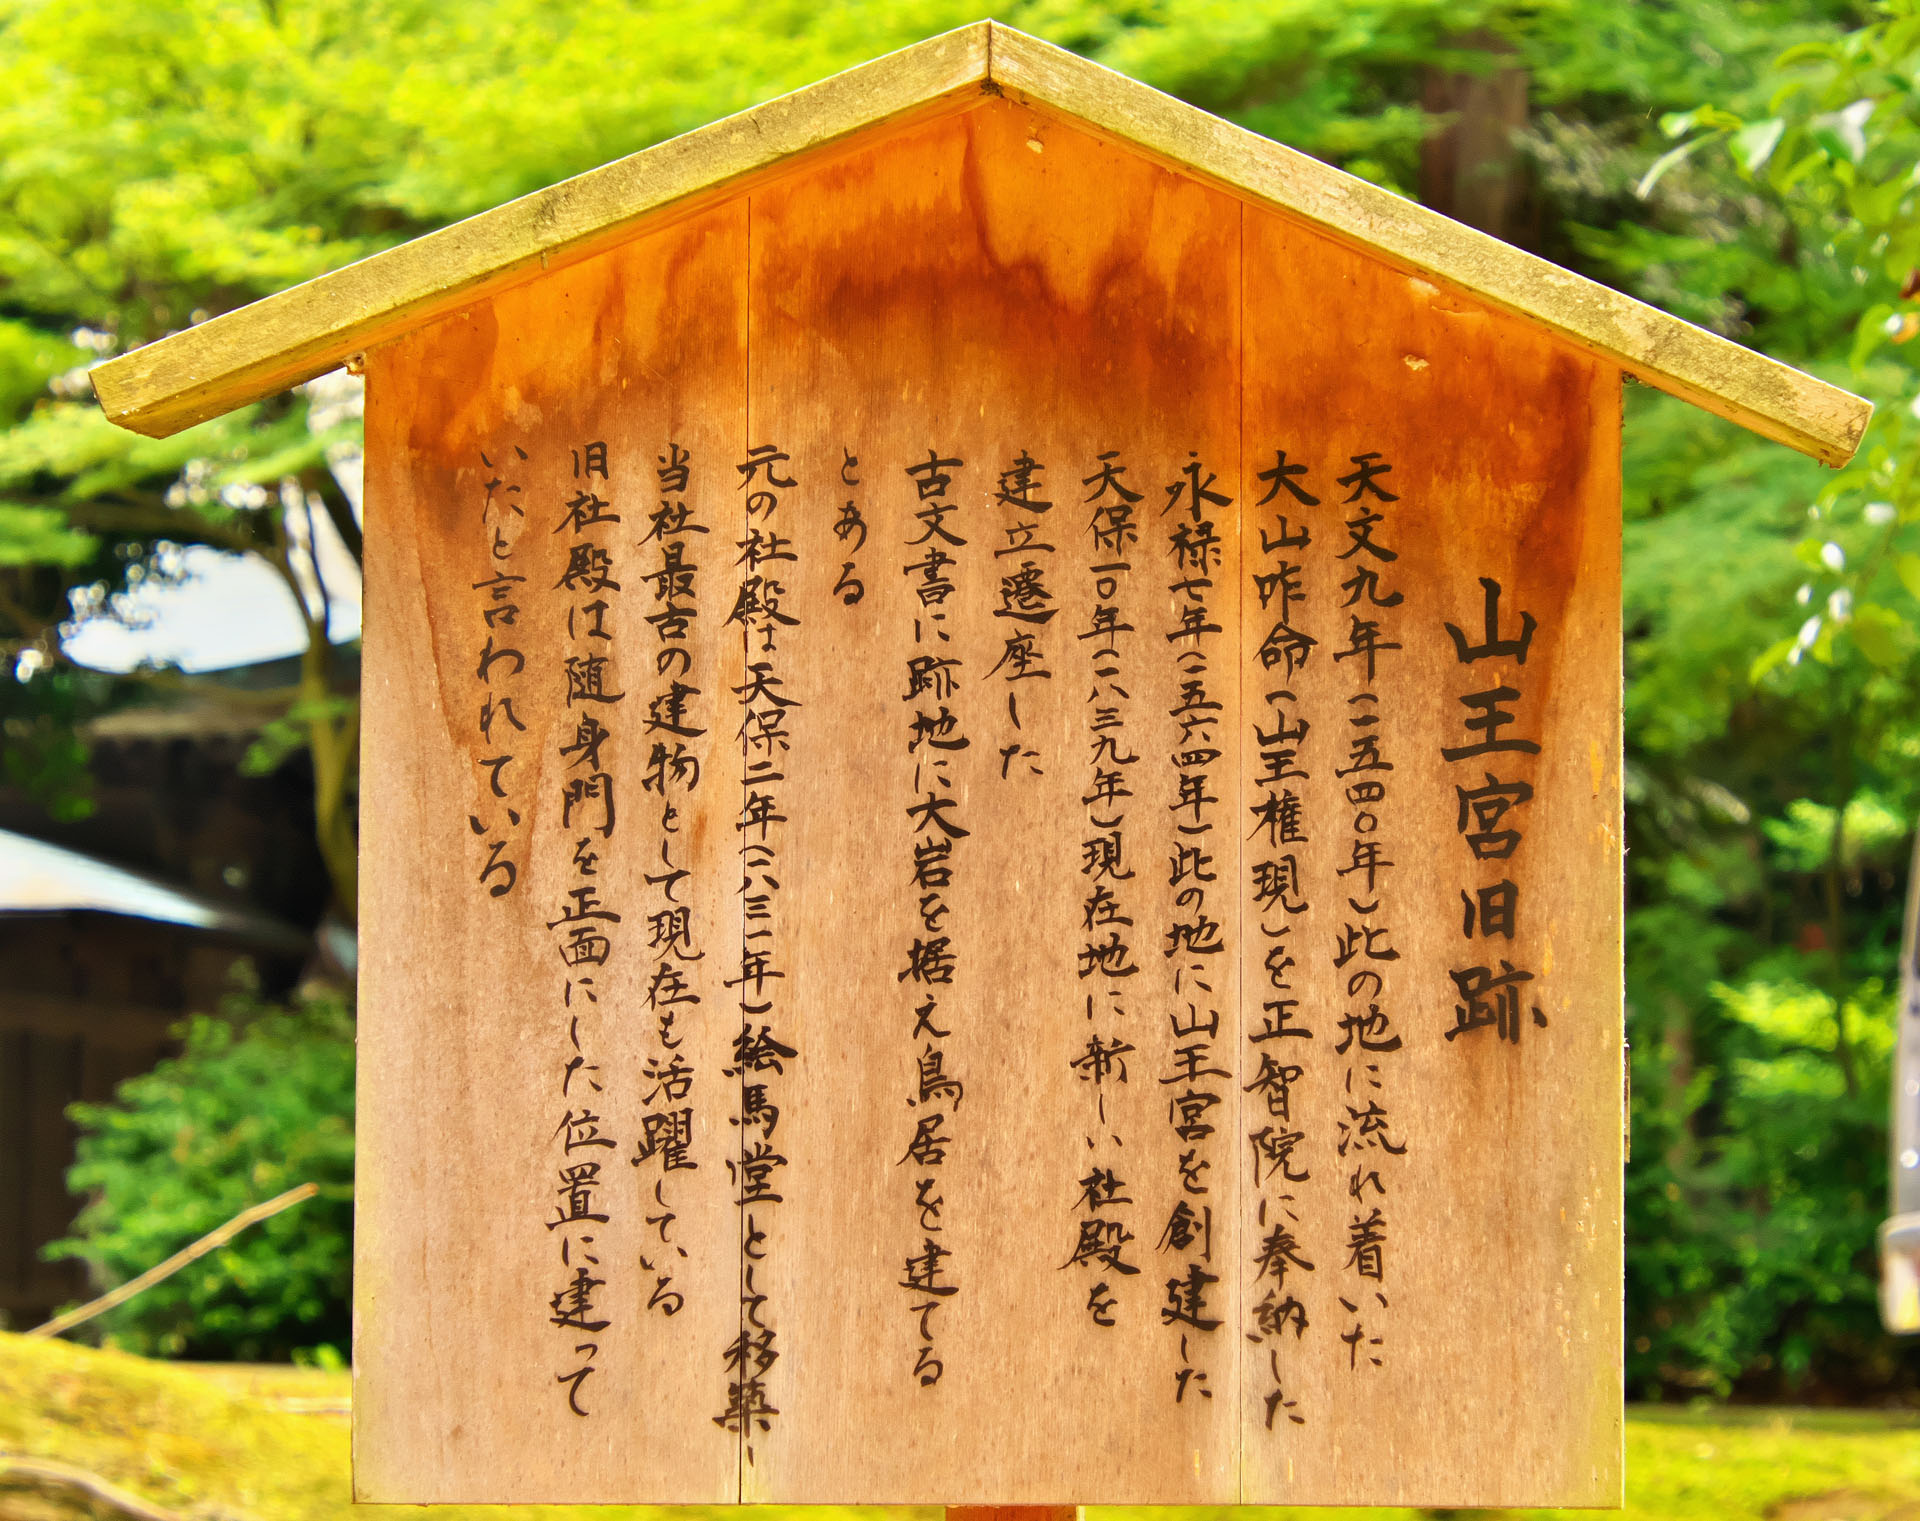 山王宮旧跡
天文九年(一五四〇年)此の地に流れ着いた
大山咋命(山王権現)を正智院に奉納した
永禄七年(一五六四年)此の地に山王宮を創建した
天保一〇年(一八三九年)現在地に新しい社殿を
建立遷座した
古文書に跡地に大岩を据え鳥居を建てる
とある
元の社殿は天保二年(一八三一年)絵馬堂として移築、
当社最古の建物として現在も活躍している
旧社殿は随身門を正面にした位置に建って
いたと言われている